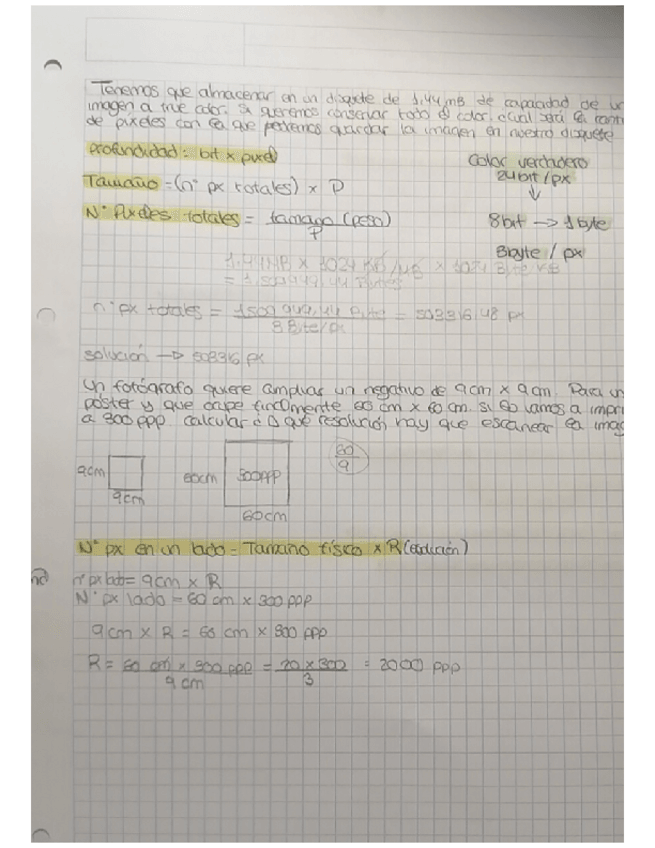 Tenemos que almacenar en un disquete de 1,44 mB de capacidad de un
imagen a true color. Si queremos conservar todo el color. ¿cual será la cant
de píxeles con la que podremos guardar la imagen en nuestro disquete
profundidad: bit x pixel
Color verdadero
24bit/px
Tamaño = (nº px totales) x P
Nº Pixeles totales = tamaño (peso)
P
8bit → 1 byte
3byte / px
1.44MB x 1024 KB/MB x 1024 Byte KB
= 1.509949,44 Bytes
nº px totales = 1509 949,44 Byte = 503316,48 px
3 Byte/px
solución → 503316 px
Un fotógrafo quiere ampliar un negativo de 9cm x 9cm. Para un
póster y que ocupe finalmente 60 cm x 60 cm. si lo vamos a impri
a 300 ppp calcular a que resolución hay que escanear la imag
9cm
9cm
60cm
300PPP
60cm
60
9
Nº px en un lado = Tamaño físico x R(esolución)
nº px lado = 9cm x R
Nº px lado = 60 cm x 300 ppp
9cm x R = 60 cm x 300 ppp
R = 60 cm x 300 ppp = 20 x 300 = 2000 ppp
9 cm
3